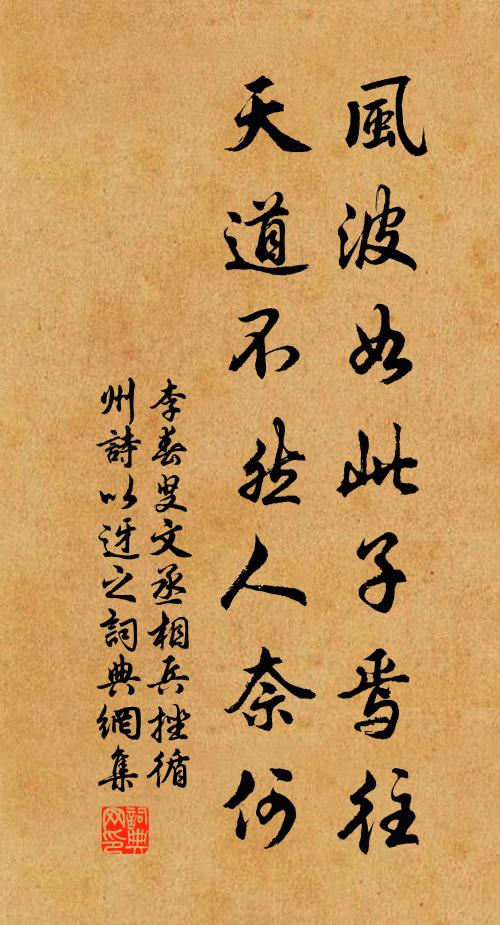 風波如此子焉往
天道不然人奈何
李春叟文丞相兵挫循
州詩以迓之詞典網集
詞典网印